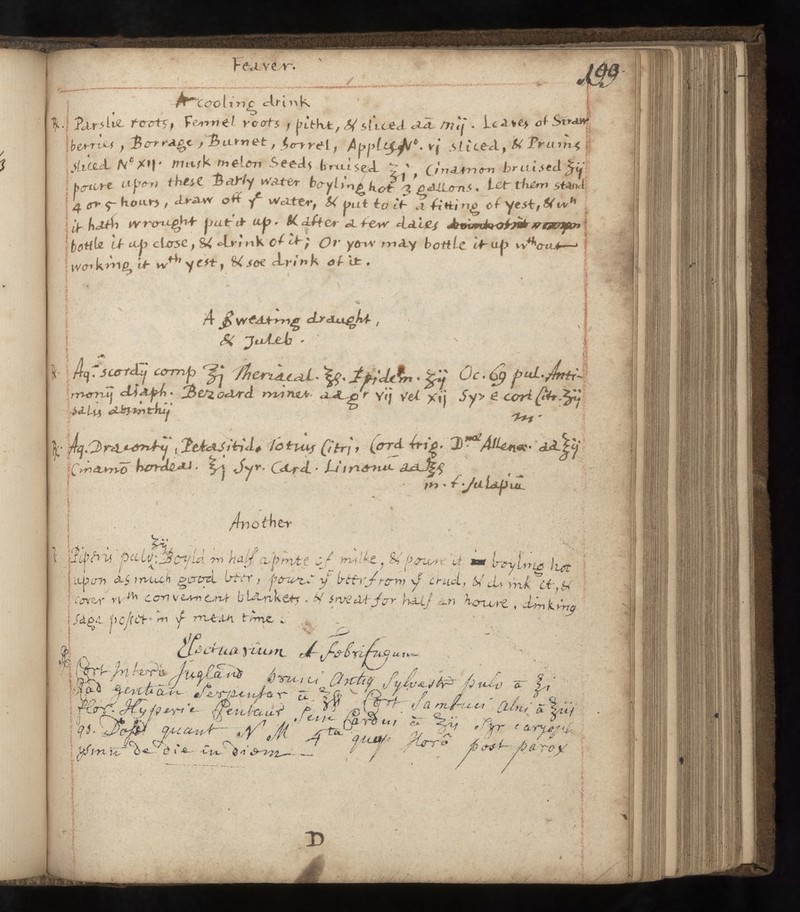 Feaver.
199
A cooling drink
℞. Parslie roots, Fennel roots, pitht, & sliced aā mij. Leaves of Straw
berries, Borrage, Burnet, Sorrel, Apples N°. vj sliced, & Pruins
sliced N° xij. musk melon Seeds bruised ℥j, Cinamon bruised ʒij
poure upon these Barly water boyling hot 3 gallons. Let them stand
4 or 5 hours, draw off yͤ water, & put to it a fitting of yest, & wⁿ
it hath wrought put it up. & after a few daies
bottle it up close, & drink of it; Or yow may bottle it up wᵗʰout
working it wᵗʰ yest, & soe drink of it.
A Sweating draught,
& Juleb.
℞. Aq. scordij comp ℥j Theriacal. ℥ß. Epidem. ʒij Oc. 69 pul. Anti-
monij diaph. Bezoard miner. aa gr vij vel xij Syr e cort Citr. ʒij
salis absinthij
m.
℞. Aq. Dracontij, Petasitid. totius Citri, Cord frig. Dⁿᵃᵉ Allenae. aā ʒij
Cinamō hordeat. ℥j Syr. Card. Limonū aā ℥ß
m. f. Julapiū
Another
Piperis pulv: ʒij Boyld in half a pinte of milke, & poure it boyling hot
upon as much good beer, poure yͤ beer from yͤ crud, & drink it, &
cover wᵗʰ convenient blankets. & sweat for half an houre, dinking
sage posset in yͤ mean time.
Electuarium A Febrifugum
℞ Cort Inter Jugland pruni Sylvestr pulv ā ʒi
Rad gentian Serpentar ā Cort Sambuci Alni ā ʒiij
flor. Hyperic Centaur Sem Cardui ā ʒij Syr caryoph
qs. Dosis quant N M 4ᵗᵃ quaq Horā post parox
de die in diem
D